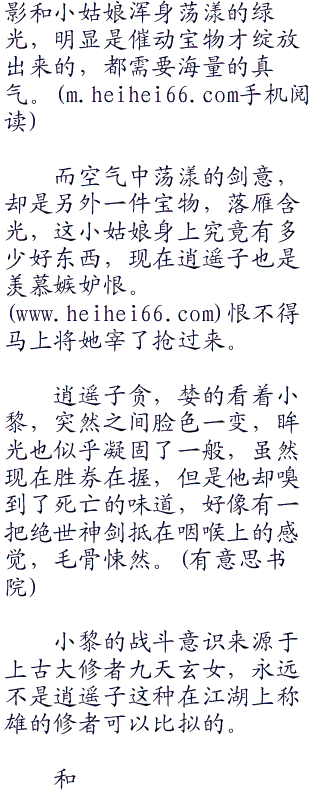 影和小姑娘浑身荡漾的绿
光，明显是催动宝物才绽放
出来的，都需要海量的真
气。(m.heihei66.com手机阅
读)
而空气中荡漾的剑意，
却是另外一件宝物，落雁含
光，这小姑娘身上究竟有多
少好东西，现在逍遥子也是
羡慕嫉妒恨。
(www.heihei66.com)恨不得
马上将她宰了抢过来。
逍遥子贪，婪的看着小
黎，突然之间脸色一变，眸
光也似乎凝固了一般，虽然
现在胜券在握，但是他却嗅
到了死亡的味道，好像有一
把绝世神剑抵在咽喉上的感
觉，毛骨悚然。(有意思书
院)
小黎的战斗意识来源于
上古大修者九天玄女，永远
不是逍遥子这种在江湖上称
雄的修者可以比拟的。
和